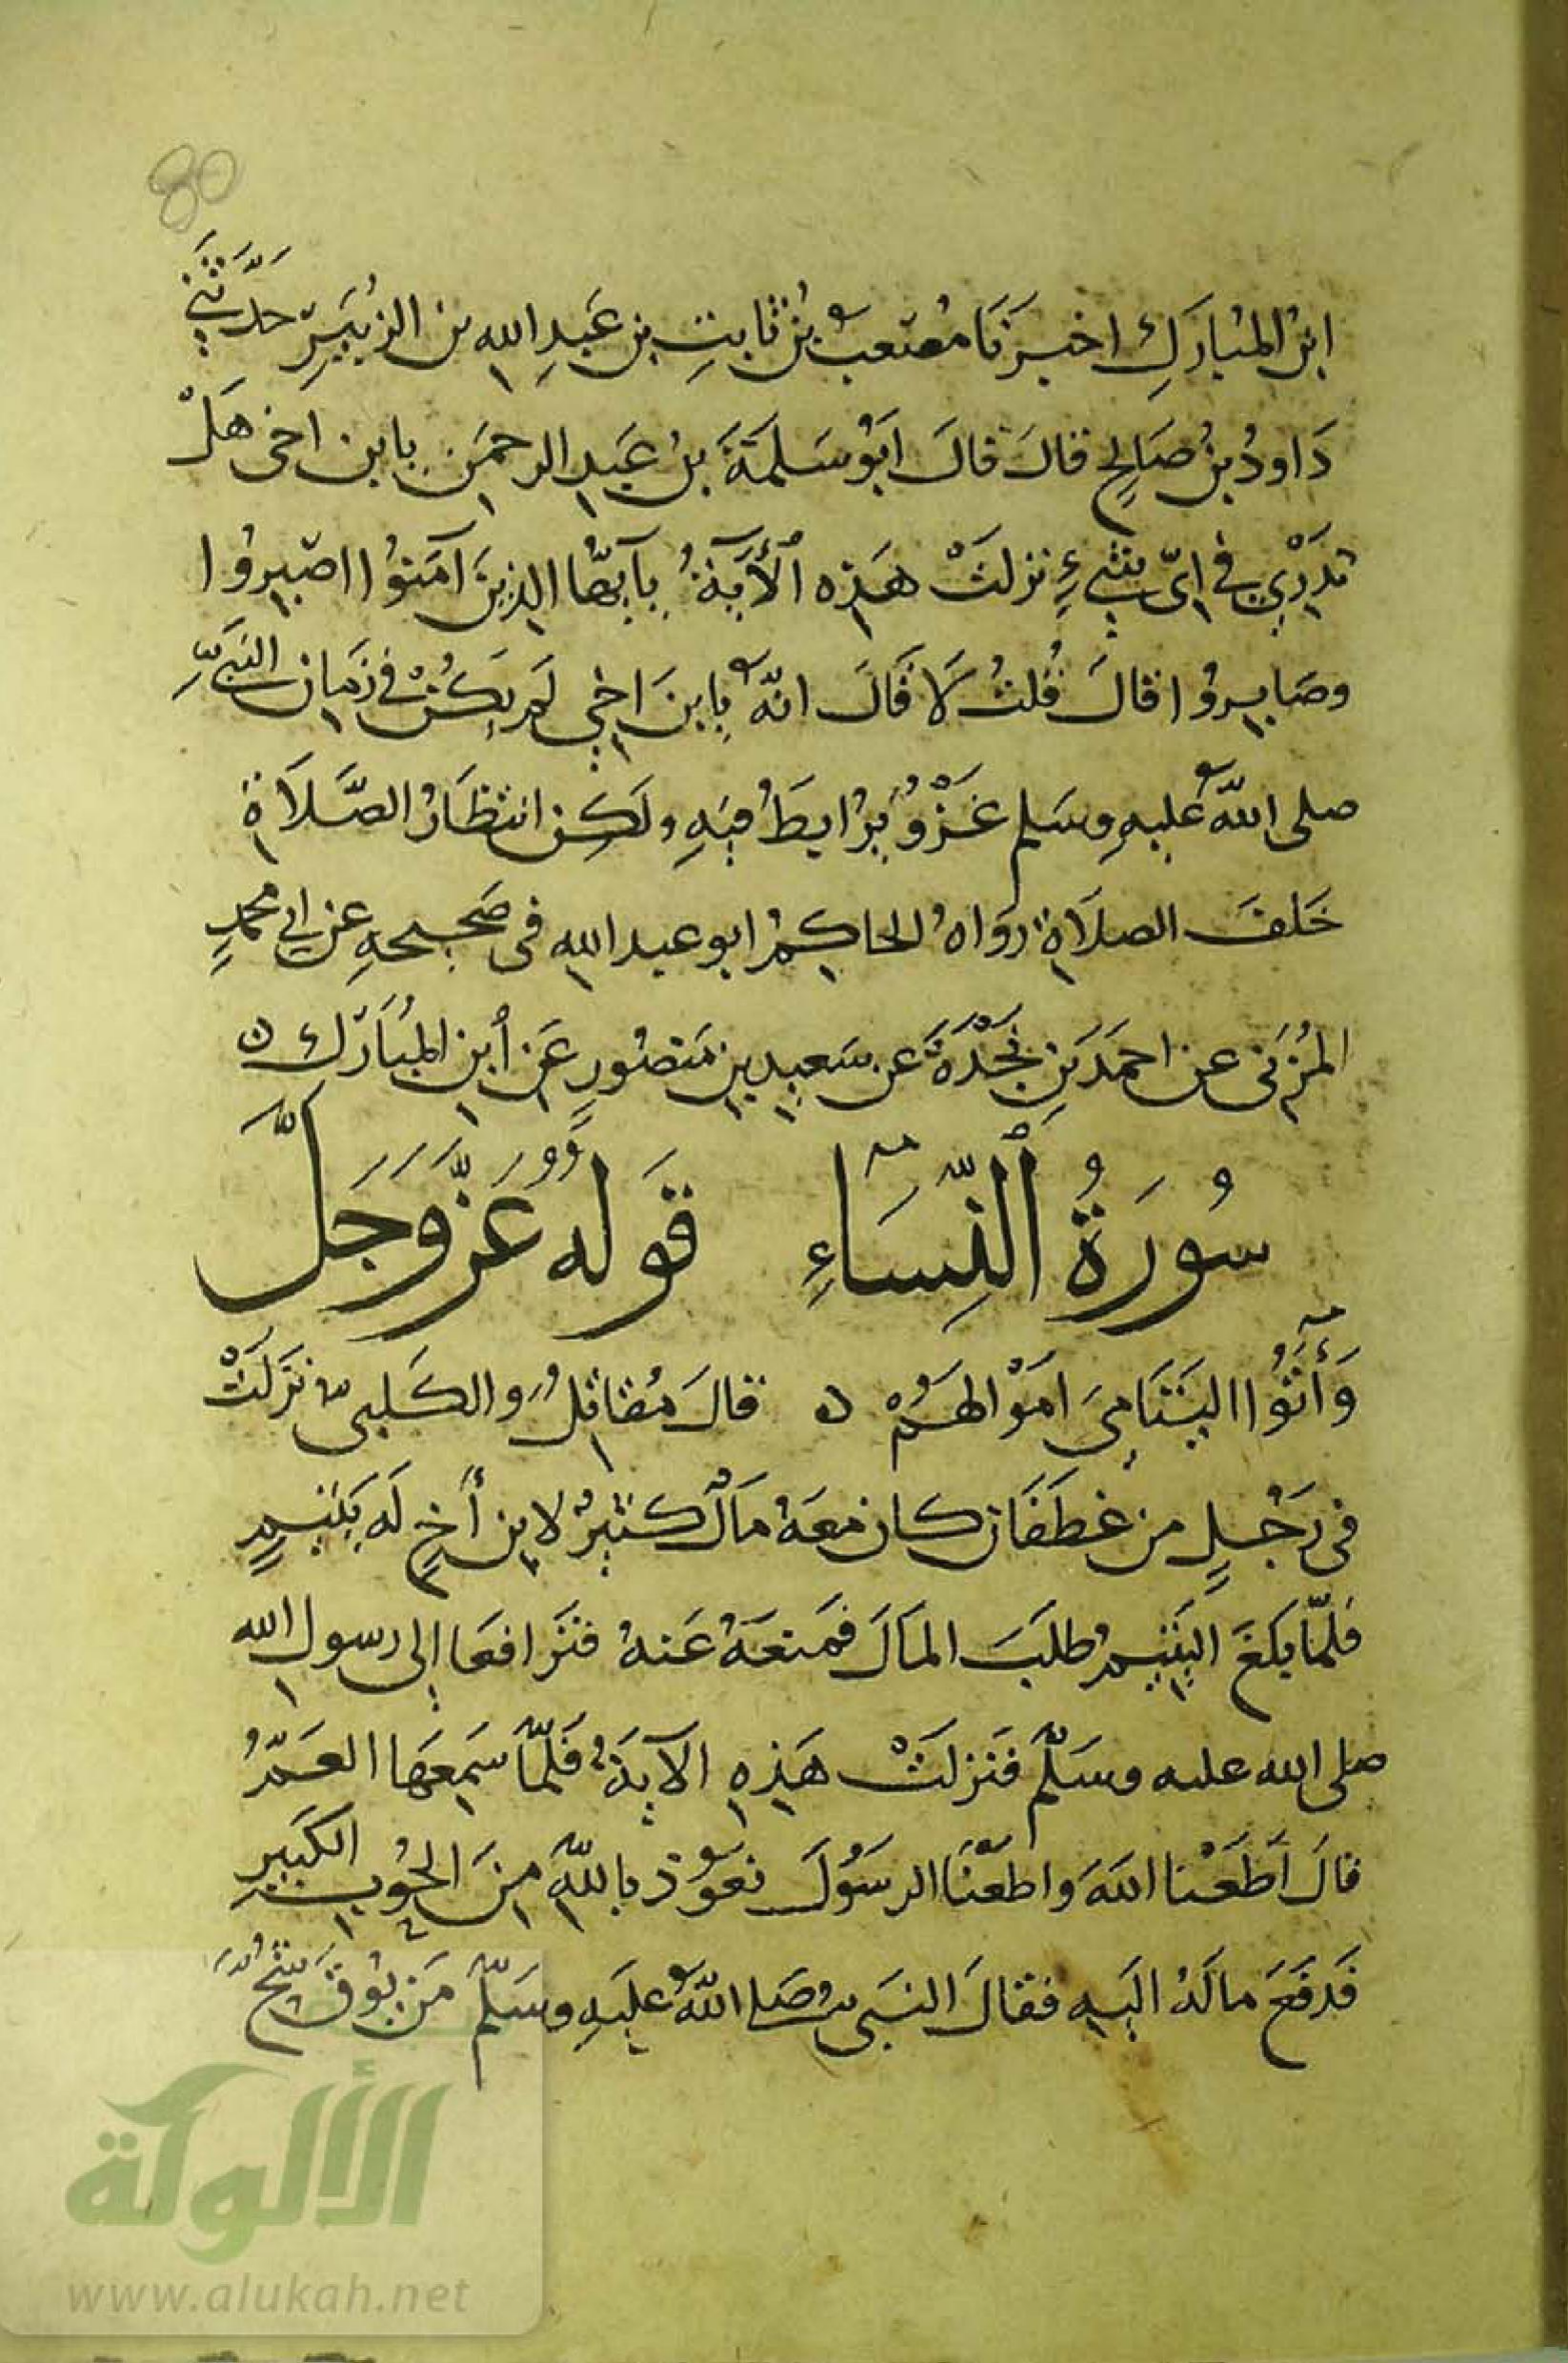 80
ابنُ المُبارَكِ اخبَرَنَا مُصْعَبُ بْنُ ثَابِتِ بنِ عَبدِ اللهِ بن الزُبَيرِ حَدَّثَنِي
دَاودُ بنُ صَالحٍ قالَ قالَ ابَوُ سَلَمَةَ بنُ عَبدِ الرحمَنِ يابن اخى هَلْ
تدرْي في ايّ شيءٍ نزلتْ هَذِه ٱلأَيَةُ يآيّهُا الذِينَ آمَنوُا اصْبِروُا
وصَابِروُا قالَ قُلتُ لَا قَالَ انّهُ يابنَ اخِي لَم يَكُنْ في زَمَانِ النَبَيِّ
صلى اللهُ عليهِ وسَلم غَزْوُ يُرُابَطُ فيهِ ولَكِن انتظَارُ الصَّلَاةِ
خَلفَ الصلَاةِ روَاهُ الحاكِمُ ابو عبدالله في صَحيحهِ عن ابي محمدٍ
المُزَنى عن احمَدَ بنِ نَجْدَةَ عن سَعيدِ بنِ مَنصُورٍ عَن أبنِ المُبَارَك ن
سُورَةُ ٱلنِّسَاءِ قَولُهُ عَزَّ وَجَلَّ
وَأٓتوُا اليَتَامَى اموَالهَمُ ن قالَ مُقاتِلُ والكَلبىُّ نزَلَتْ
في رَجُلٍ من غطَفَان كان معَهُ مَالٌ كَثيرُ لابنِ أخٍ لَه يَتيمٍ
فلمّا بَلغَ اليَتيمُ طلبَ المَالَ فمَنعَهُ عَنهُ فترَافعَا إلى رسول الله
صلى الله عليه وسَلّم فنَزلَتْ هَذِهِ الآيَةُ فَلمّا سَمِعَهَا العَمّ
قالَ اَطَعْنا اللهَ واطعْنَا الرسَوُلَ نعَوُذ باللهِ مِنَ الحُوبِ الكَبيرِ
فَدفَعَ مالَهُ اليَهِ فقالَ النبَىُّ صَلى اللهُ عليَهِ وسَلّم مَن يوُقَ شُحَّ
الألوكة
www.alukah.net